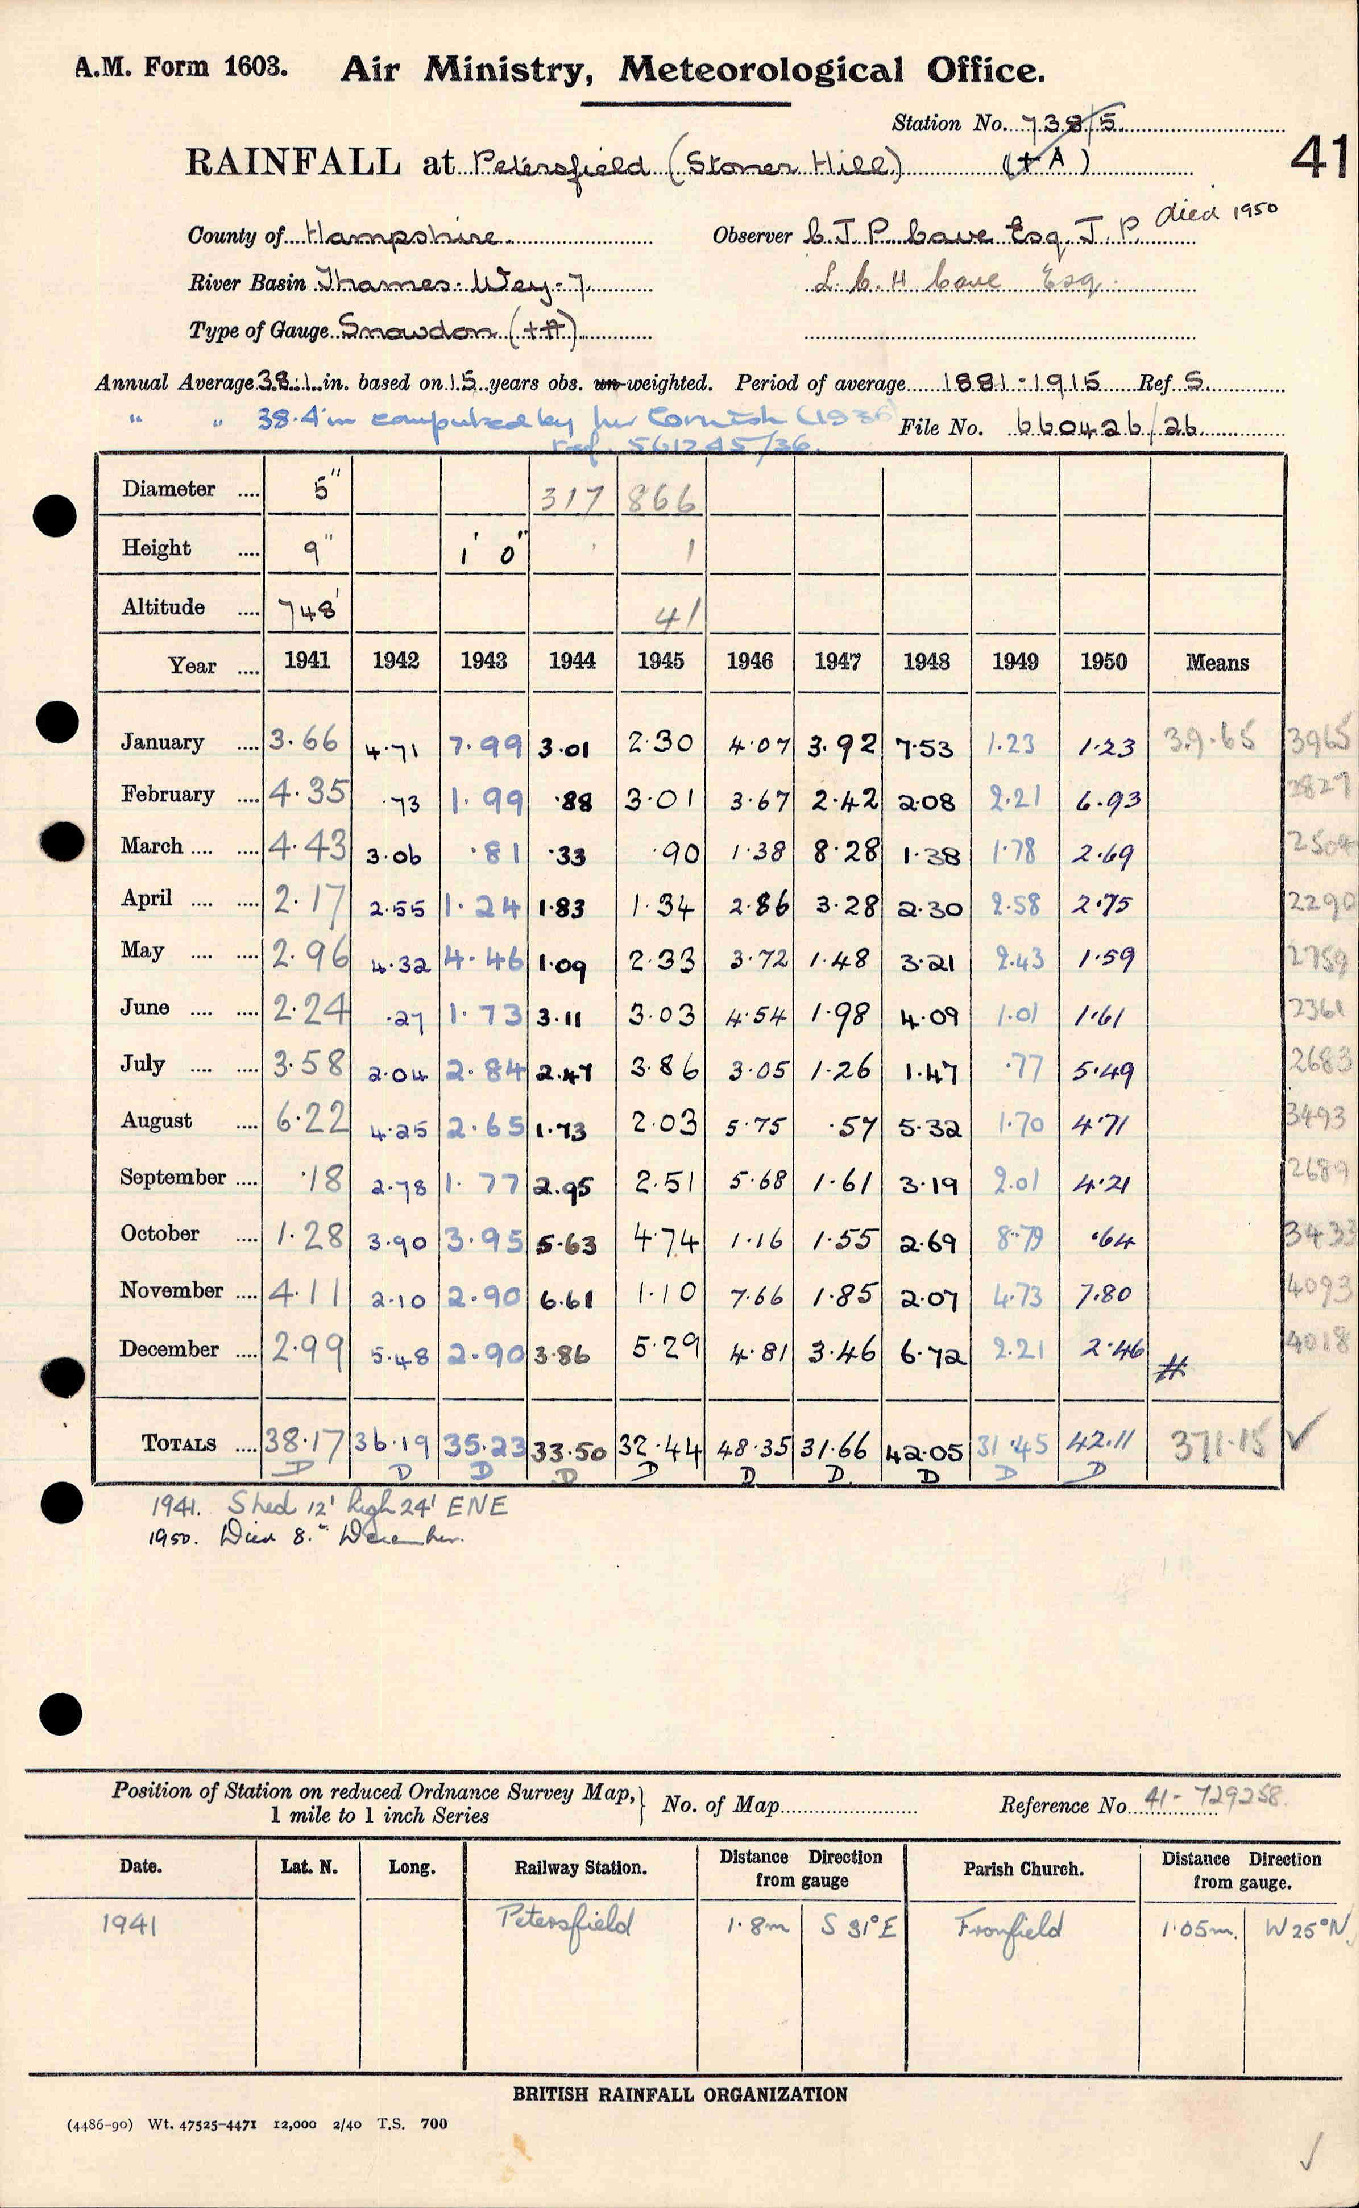 A.M. Form 1603. Air Ministry, Meteorological Office.
Station No. 7385
RAINFALL at Petersfield (Stoner Hill) (+A) 41
died 1950
County of Hampshire Observer C J P Cave Esq. J. P.
River Basin Thames-Wey-7 L. C. H Cave Esq.
Type of Gauge Snowdon (+A)
Annual Average 38.1 in. based on 15 years obs. un-weighted. Period of average 1881-1915 Ref S.
" " 38.4 in computed by Cornish (1936) File No. 660426/26
ref. 561245/36.
Diameter .... 5" 317 866
Height .... 9" 1' 0" 1
Altitude .... 748' 41
Year .... 1941 1942 1943 1944 1945 1946 1947 1948 1949 1950 Means
January .... 3.66 4.71 7.99 3.01 2.30 4.07 3.92 7.53 1.23 1.23 39.65 3965
February .... 4.35 .73 1.99 .88 3.01 3.67 2.42 2.08 2.21 6.93 2827
March .... .... 4.43 3.06 .81 .33 .90 1.38 8.28 1.38 1.78 2.69 2504
April .... .... 2.17 2.55 1.24 1.83 1.34 2.86 3.28 2.30 2.58 2.75 2290
May .... .... 2.96 4.32 4.46 1.09 2.33 3.72 1.48 3.21 2.43 1.59 2759
June .... .... 2.24 .27 1.73 3.11 3.03 4.54 1.98 4.09 1.01 1.61 2361
July .... .... 3.58 2.04 2.84 2.47 3.86 3.05 1.26 1.47 .77 5.49 2683
August .... 6.22 4.25 2.65 1.73 2.03 5.75 .57 5.32 1.70 4.71 3493
September .... .18 2.78 1.77 2.95 2.51 5.68 1.61 3.19 2.01 4.21 2689
October .... 1.28 3.90 3.95 5.63 4.74 1.16 1.55 2.69 8.79 .64 3433
November .... 4.11 2.10 2.90 6.61 1.10 7.66 1.85 2.07 4.73 7.80 4093
December .... 2.99 5.48 2.90 3.86 5.29 4.81 3.46 6.72 2.21 2.46 # 4018
TOTALS .... 38.17 36.19 35.23 33.50 32.44 48.35 31.66 42.05 31.45 42.11 371.15 ✓
D D D D D D D D D D
1941. Shed 12' high 24' ENE
1950. Died 8th December.
Position of Station on reduced Ordnance Survey Map,} No. of Map Reference No. 41-729258
1 mile to 1 inch Series
Date. Lat. N. Long. Railway Station. Distance Direction from gauge Parish Church. Distance Direction from gauge.
1941 Petersfield 1.8m S 31° E Froxfield 1.05m. W 25° N.
BRITISH RAINFALL ORGANIZATION
(4486-90) Wt. 47525-4471 12,000 2/40 T.S. 700
✓